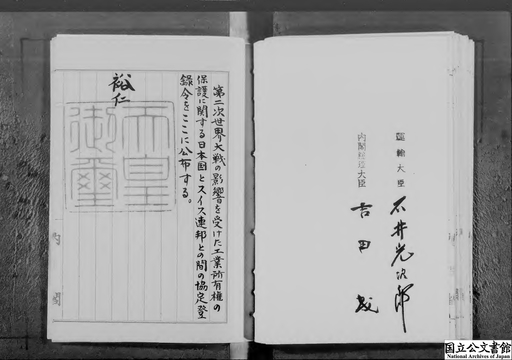 運輸大臣 石井光次郎
内閣総理大臣 吉田茂
第二次世界大戦の影響を受けた工業所有権の
保護に関する日本国とスイス連邦との間の協定登
録令をここに公布する。
裕仁
天皇
御璽
国立公文書館
National Archives of Japan